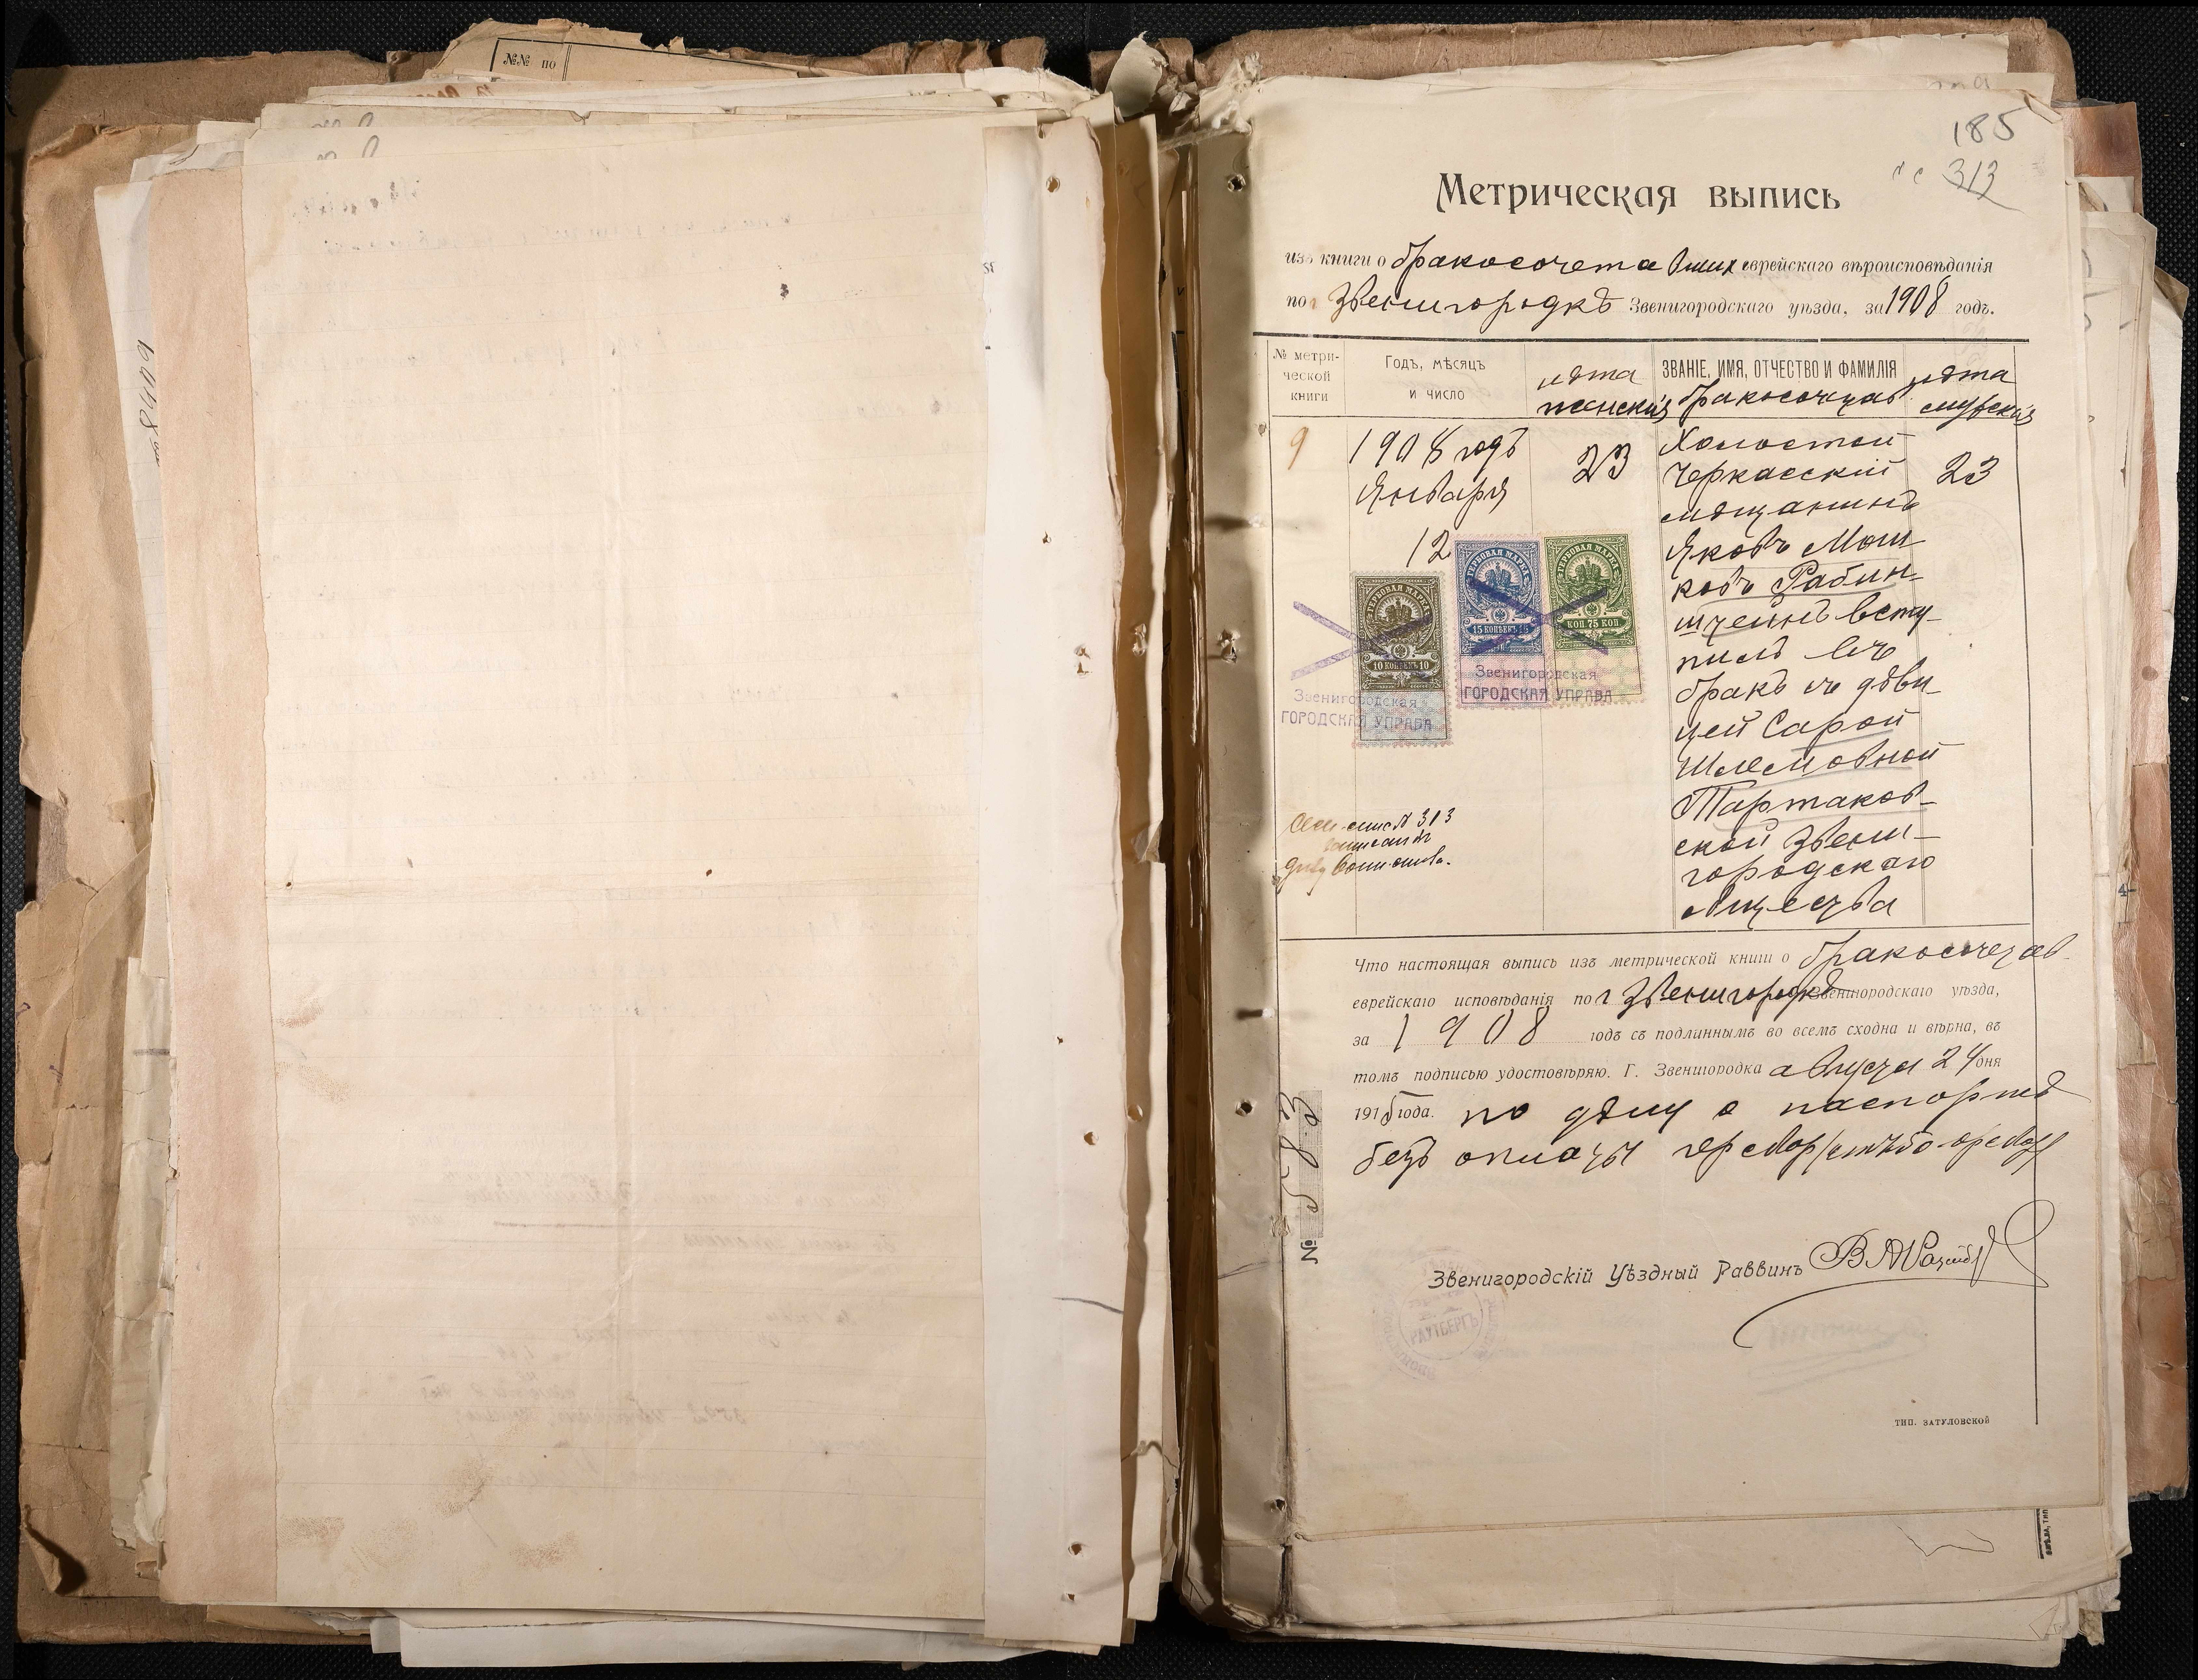 №№ по
185
313
Метрическая выпись
изъ книги о бракосочетавшихъ еврейскаго вѣроисповѣданія
по г Звенигородкѣ Звенигородскаго уѣзда, за 1908 годъ.
№ метри-
ческой
книги
Годъ, мѣсяцъ
и число
лѣта
женскія
ЗВАНІЕ, ИМЯ, ОТЧЕСТВО И ФАМИЛІЯ
бракосочетав
лѣта
мужскія
9
1908 годъ
Января
12
23
Холостой
Черкасскій
мѣщанинъ
Яковъ Мош
ковъ Рабин-
штейнъ всту-
пилъ въ
бракъ съ дѣви-
цей Сарой
Шлемовной
Тартаков-
ской Звени-
городскаго
общества
23
ГЕРБОВАЯ МАРКА
10 КОПѢЕКЪ 10
ГЕРБОВАЯ МАРКА
15 КОПѢЕКЪ 15
ГЕРБОВАЯ МАРКА
КОП. 75 КОП
Звенигородская
ГОРОДСКАЯ УПРАВА
Звенигородская
ГОРОДСКАЯ УПРАВА
N 313
Что настоящая выпись изъ метрической книги о бракосочетав
еврейскаго исповѣданія по г Звенигородкѣ Звенигородскаго уѣзда,
за 1908 годъ съ подлиннымъ во всемъ сходна и вѣрна, въ
томъ подписью удостовѣряю. Г. Звенигородка августа 24 дня
1915 года. по дѣлу о паспортѣ
безъ оплаты
Звенигородскій Уѣздный Раввинъ
РАУТБЕРГЪ
№
ТИП. ЗАТУЛОВСКОЙ